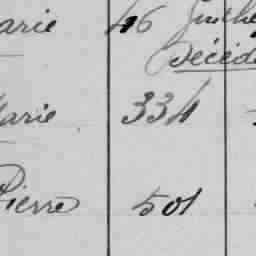 arie 46
Décéd
Marie 334
Pierre 501